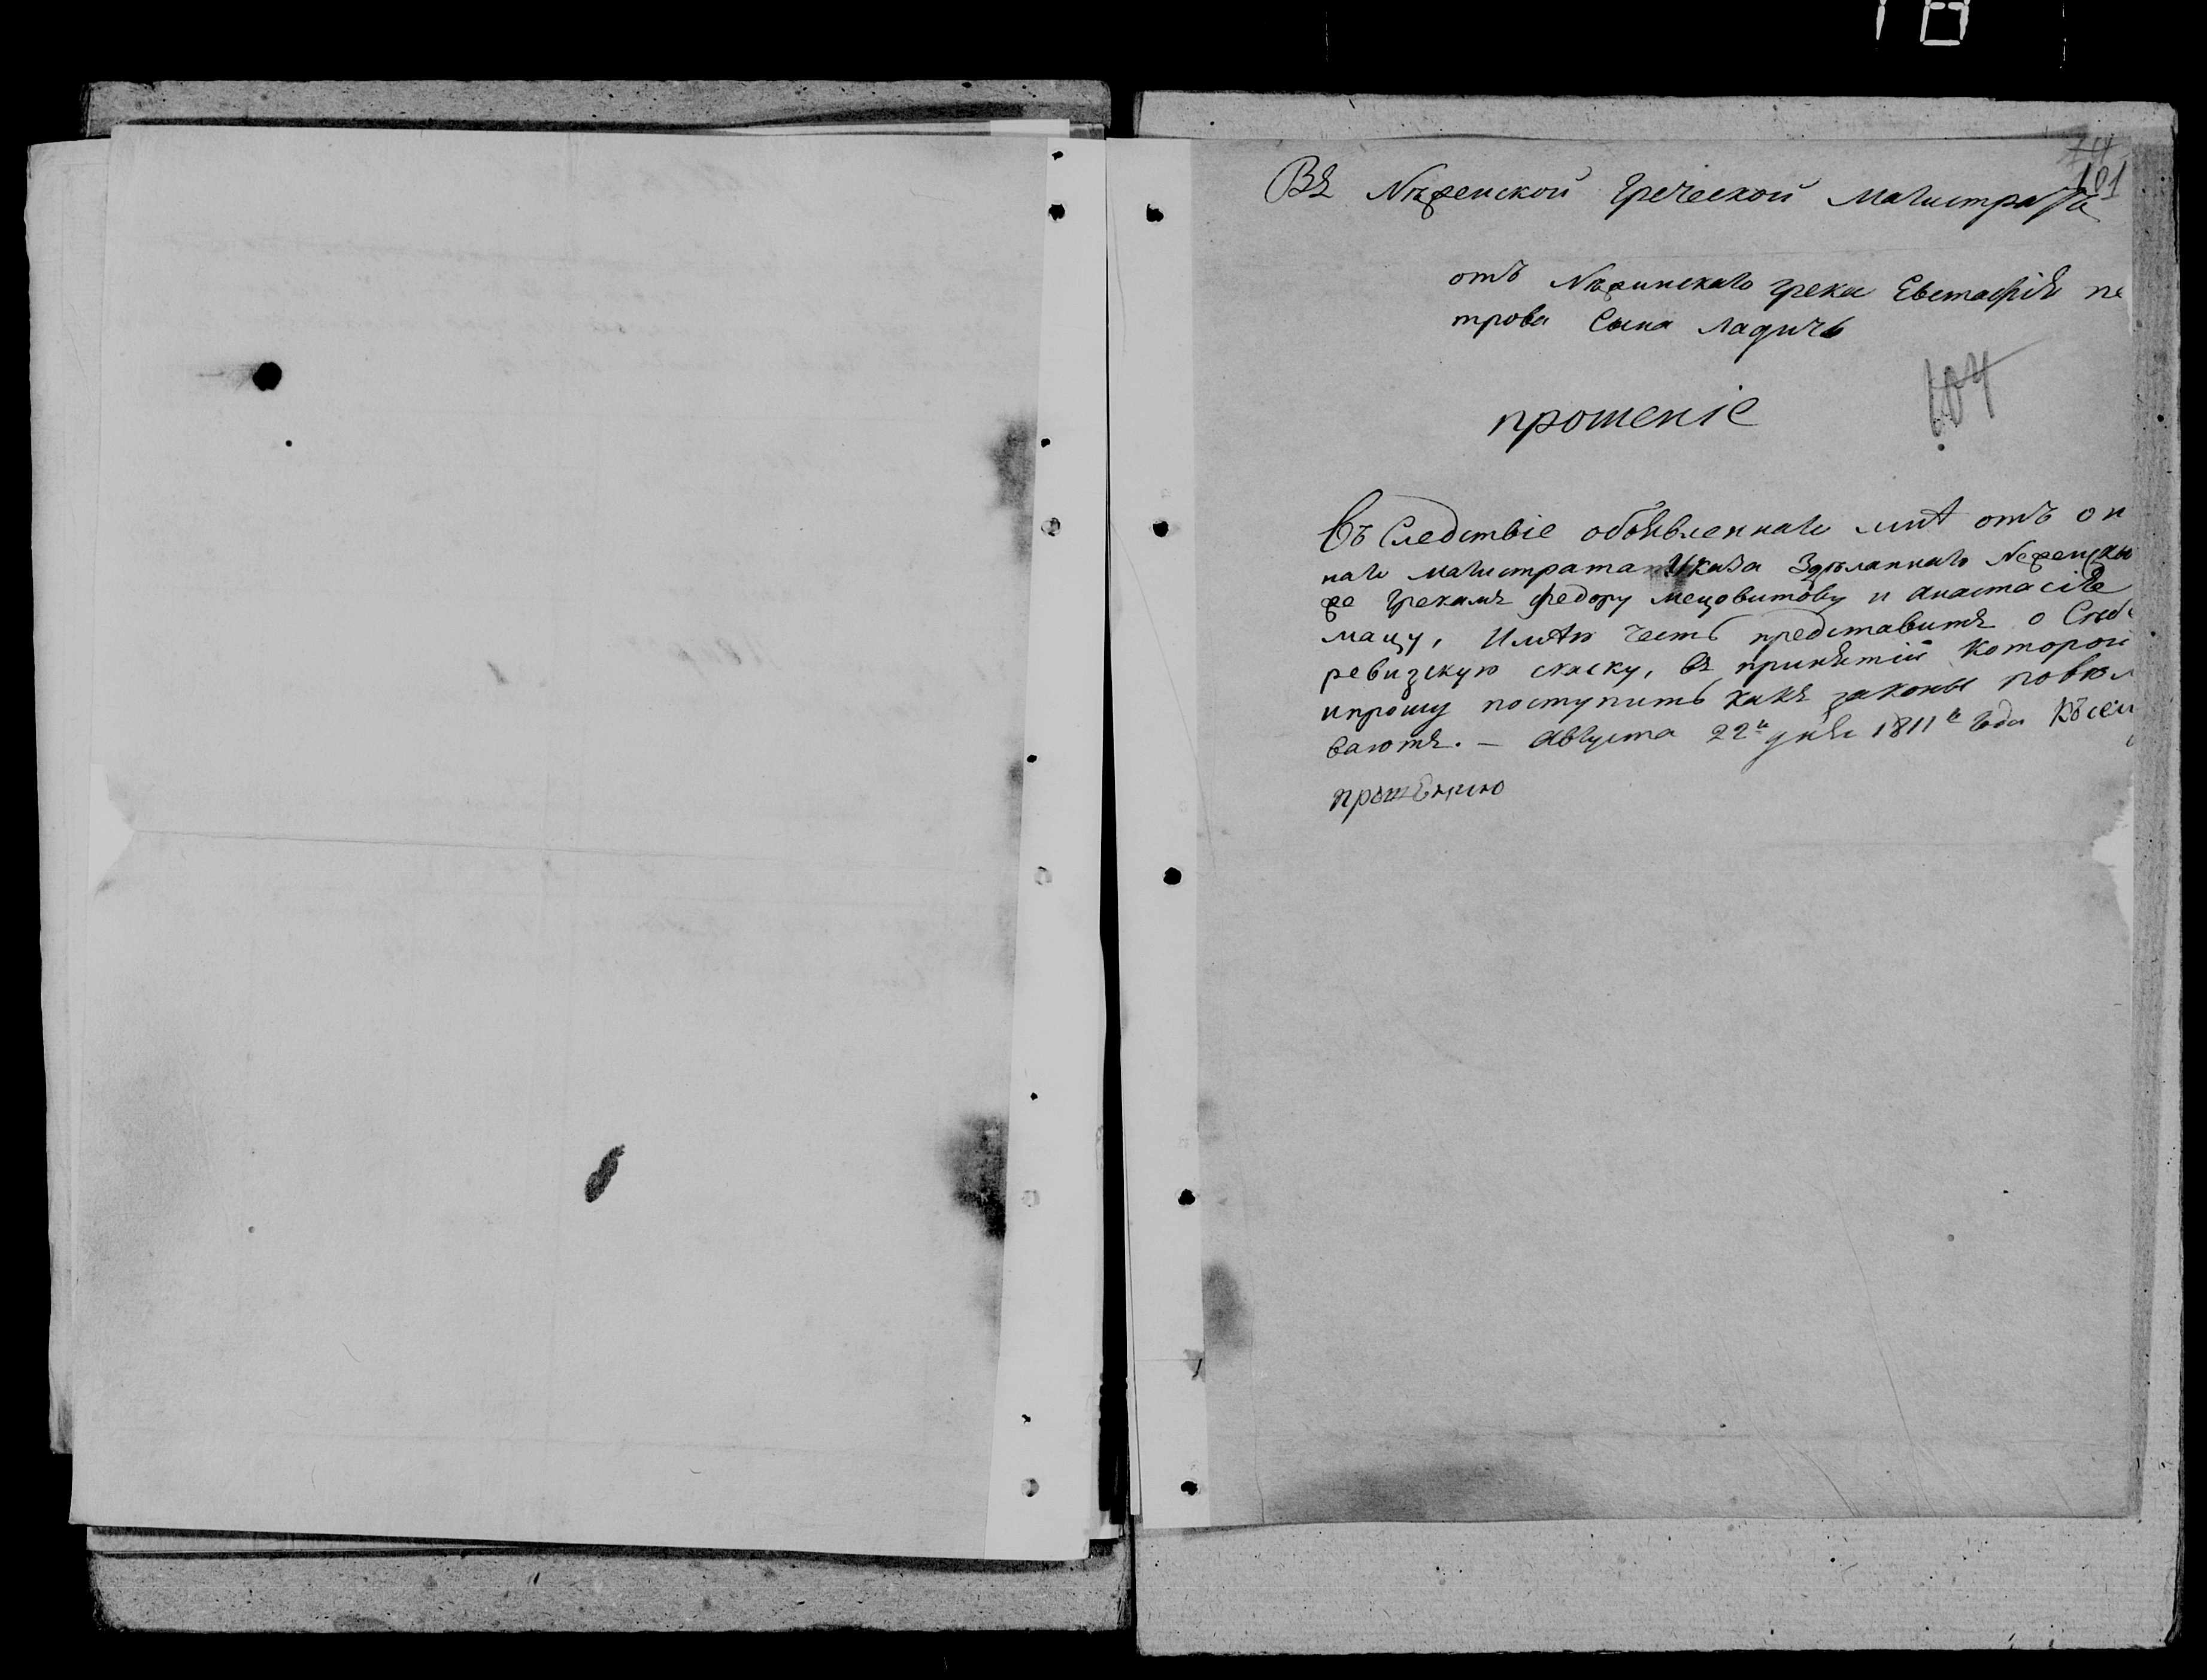 101
Въ Нѣженской Греческой Магистратъ
отъ Нѣжинскаго грека Евстафія пе
трова Сына Ладичь
104
прошеніе
Въ Следствіе объявленнаго мнѣ отъ он
наго магистрата Указа Здѣланнаго Неженски
же грекамъ федору мецовитову и анастасіе
мацу, Имѣю честь представитъ о Себѣ
ревизскую скаску, въ принятіи которой
ипрошу поступить какъ законы повел
ваютъ. — Августа 22го дня 1811го года Къ сем
прошению